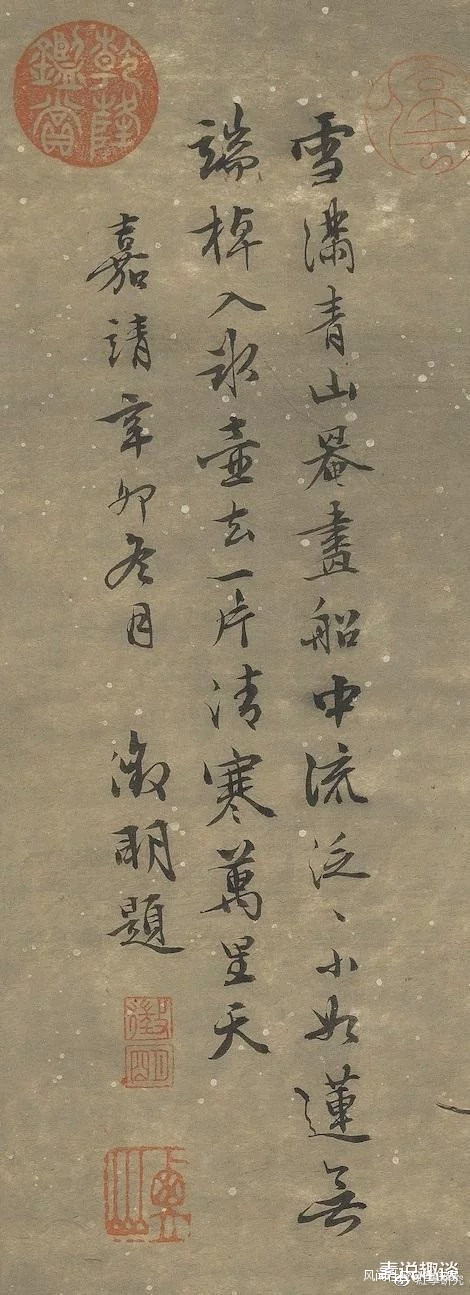 雪滿青山罨畫船中流泛〻小如蓮無
端棹入冰壺去一片清寒萬里天
嘉靖辛卯冬月 徵明題
乾隆鑑賞
徵明
衡山
素说趣谈